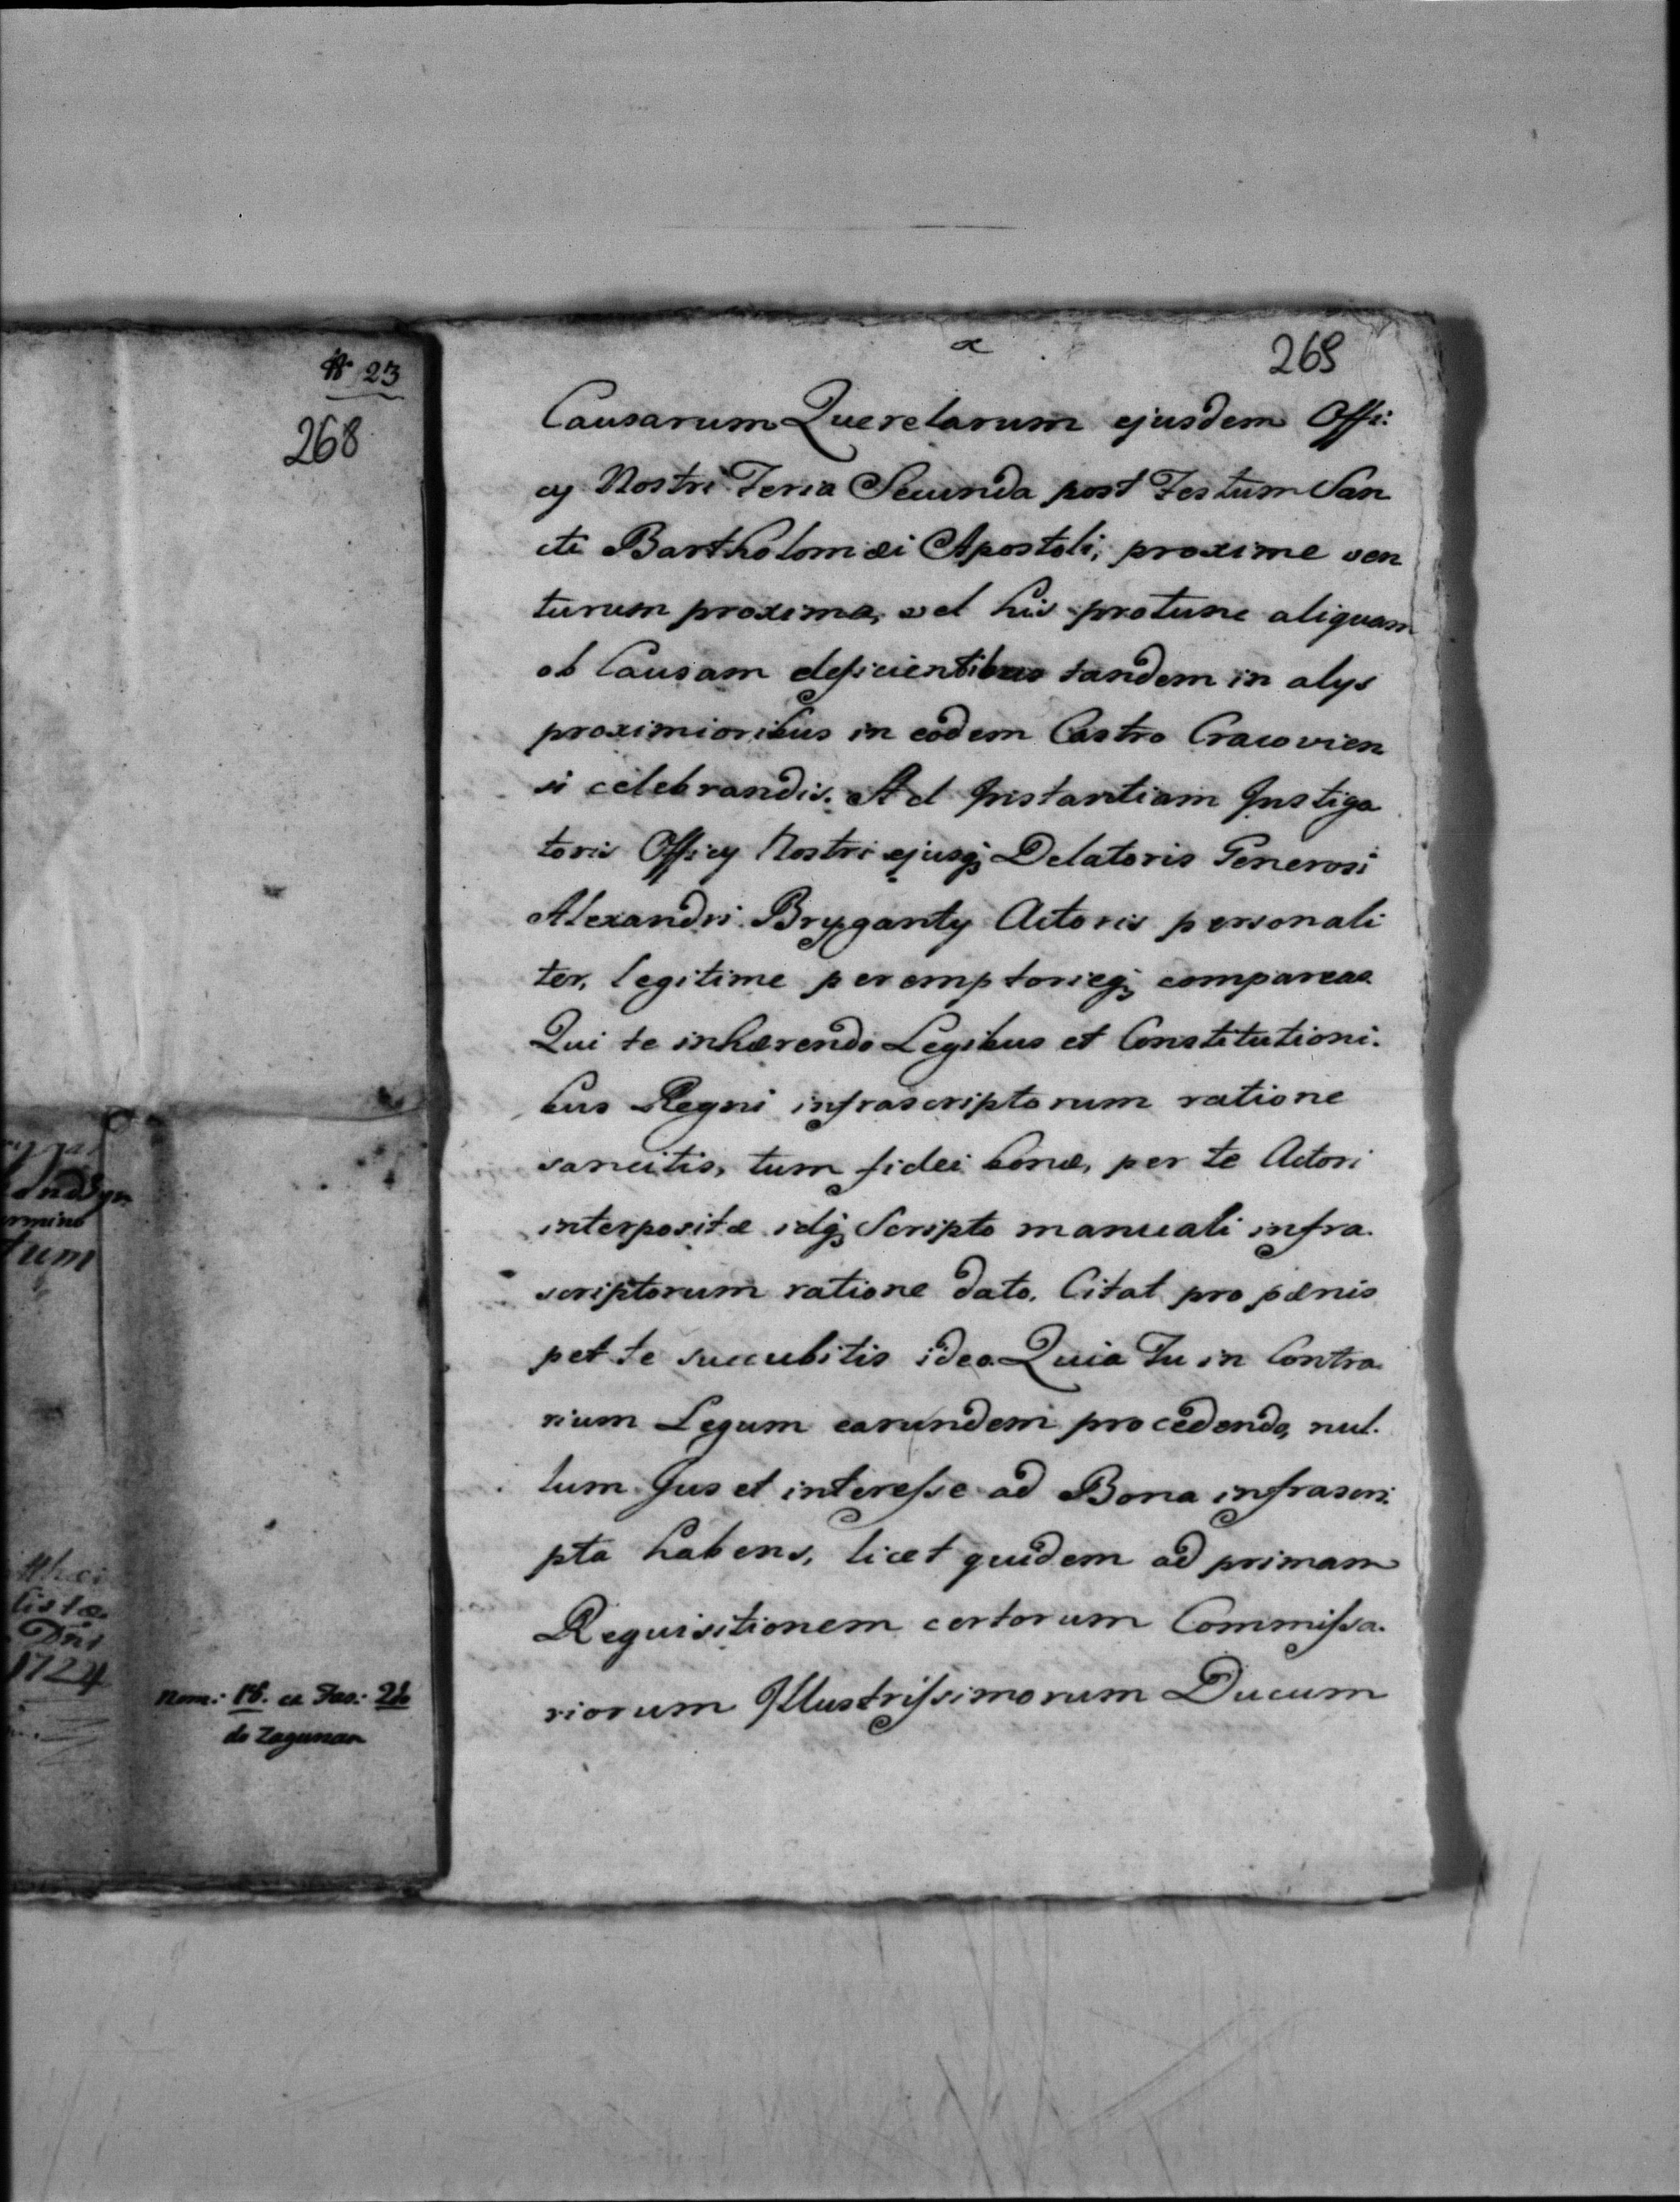 № 23
268
tum
listæ
Dni
1724
Nom: 18. ex Fas: 2do
de Zagunan
269
Causarum Querelarum ejusdem Offi:
cy Nostri Feria Secunda post Festum San
cti Bartholomæi Apostoli, proxime ven
turum proxima, vel his protunc aliquam
ob Causam deficientibus tandem in alys
proximioribus in eodem Castro Cracovien
si celebrandis. Ad Instantiam Instiga
toris Officy Nostri ejusq; Delatoris Generosi
Alexandri Bryganty Actoris personali
ter, legitime peremptorieq; compareas.
Qui te inhærendo Legibus et Constitutioni.
bus Regni infrascriptorum ratione
sancitis, tum fidei bonæ, per te Actori
interpositæ idq; Scripto manuali infra.
scriptorum ratione dato. Citat pro pænis
pet te succubitis ideo Quia Tu in Contra.
rium Legum earundem procedendo, nul.
lum Jus et interesse ad Bona infrascri.
pta habens, licet quidem ad primam
Requisitionem certorum Commissa.
riorum Illustrissimorum Ducum